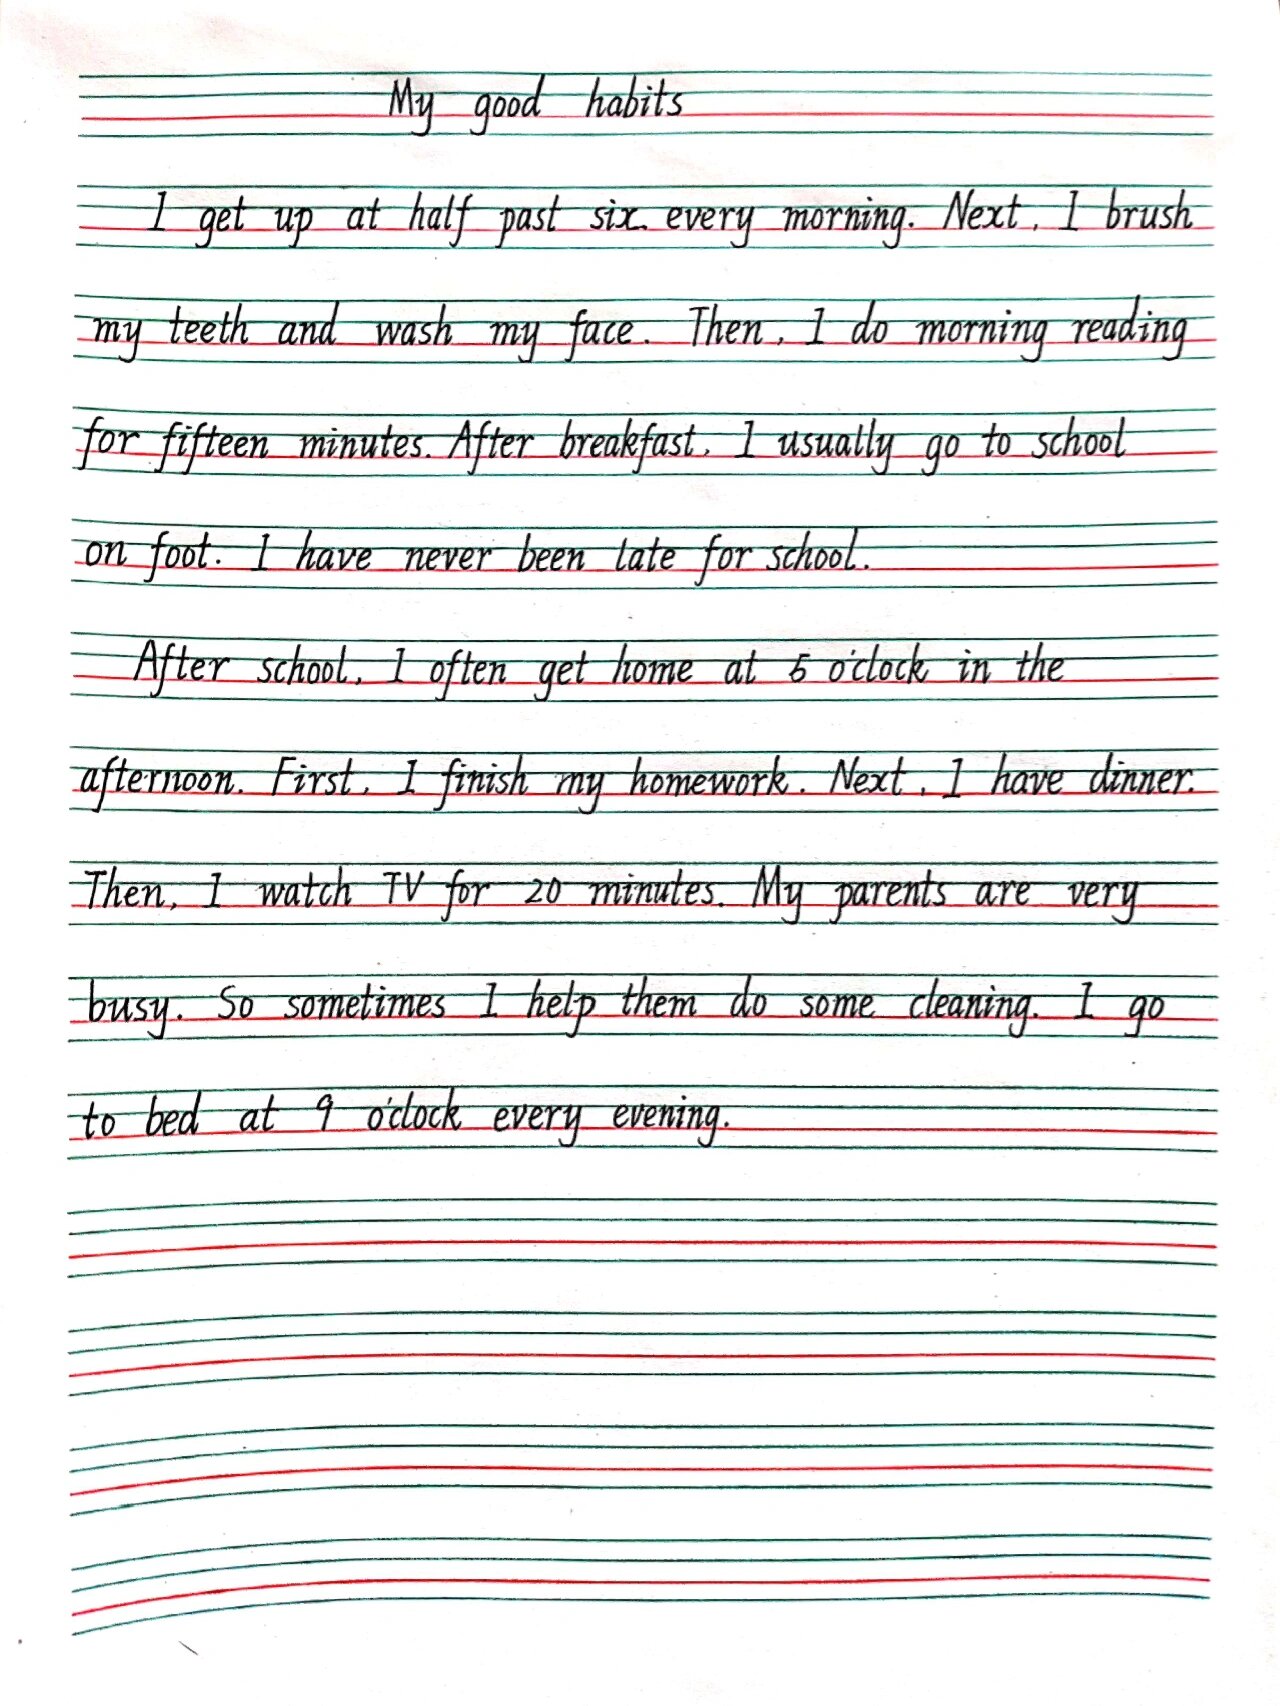 My good habits
I get up at half past six. every morning. Next, I brush
my teeth and wash my face. Then, I do morning reading
for fifteen minutes. After breakfast, I usually go to school
on foot. I have never been late for school.
After school, I often get home at 5 o'clock in the
afternoon. First, I finish my homework. Next, I have dinner.
Then, I watch TV for 20 minutes. My parents are very
busy. So sometimes I help them do some cleaning. I go
to bed at 9 o'clock every evening.